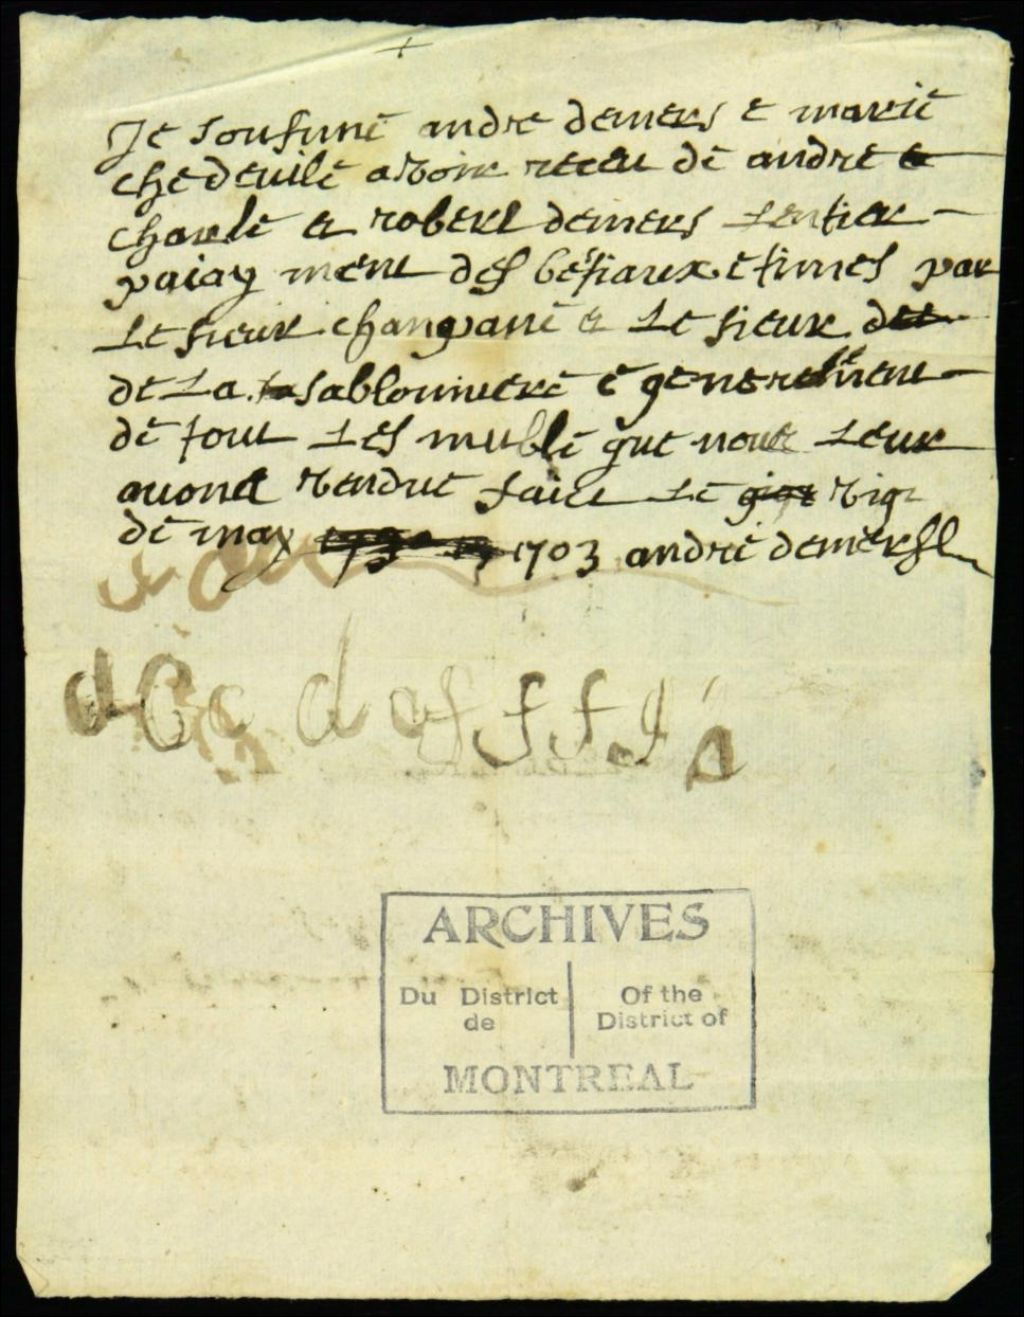 Je soussine andre demers e marie
chedevile avoir receu de andre e
charle et robert demers lentier
paiay ment des bestiaux estimes par
le sieur changpane e le sieur
de la sablonniere e generelement
de tout les muble que nous leur
avons vendue faict le
de may 1703 andre demers
ARCHIVES
Du District de
Of the District of
MONTREAL